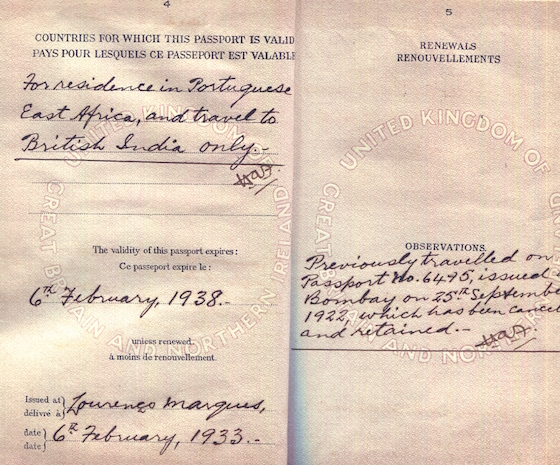 4
COUNTRIES FOR WHICH THIS PASSPORT IS VALID
PAYS POUR LESQUELS CE PASSEPORT EST VALABLE
For residence in Portuguese
East Africa, and travel to
British India only.-
The validity of this passport expires:
Ce passeport expire le:
6th February, 1938.-
unless renewed.
à moins de renouvellement.
Issued at
délivré à
Lourenço Marques,
date
date
6th February, 1933.-
UNITED KINGDOM OF
GREAT BRITAIN AND NORTHERN IRELAND
5
RENEWALS
RENOUVELLEMENTS
OBSERVATIONS.
Previously travelled on
Passport No. 6495, issued
Bombay on 25th Septembe
1922, which has been cancel
and retained.-
UNITED KINGDOM OF
GREAT BRITAIN AND NORTHERN